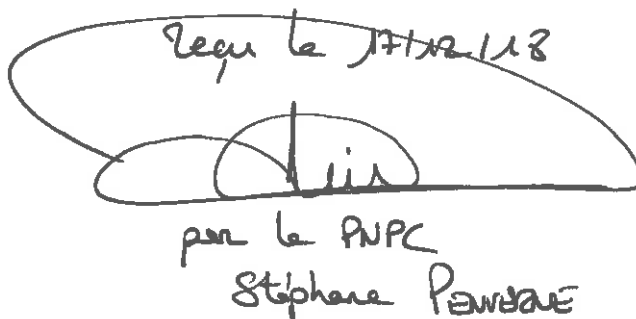 Reçu le 17/12/18
par le PNPC
Stéphane PENVERNE